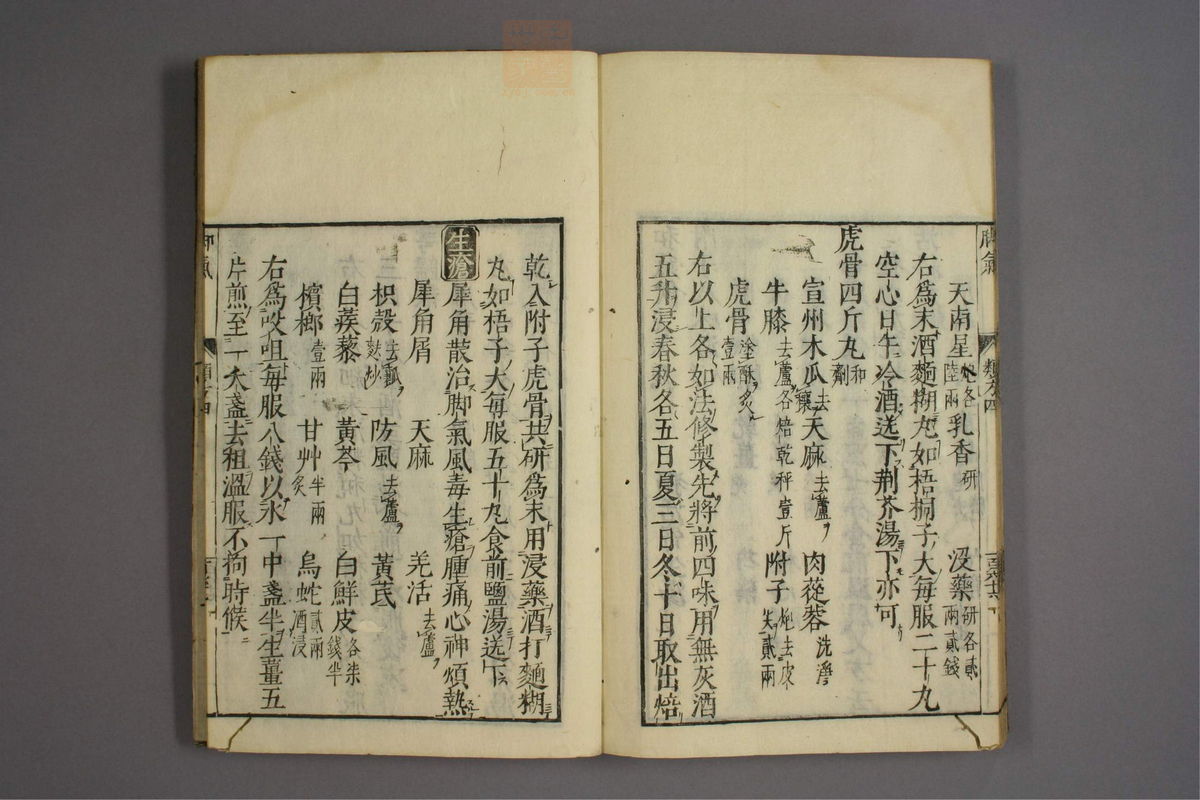 脚氣 類卷四
天南星炮各陸兩 乳香研 沒藥研各貳兩貳錢
右爲末酒麵糊丸如梧桐子大每服二十丸
空心日午冷酒送下荆芥湯下亦可
虎骨四斤丸和劑
宣州木瓜去穰 天麻去蘆 肉蓯蓉洗淨
牛膝去蘆各焙乾秤壹斤 附子炮去皮尖貳兩
虎骨塗酥炙壹兩
右以上各如法修製先將前四味用無灰酒
五升浸春秋各五日夏三日冬十日取出焙
乾入附子虎骨共研爲末用浸藥酒打麵糊
丸如梧子大每服五十丸食前鹽湯送下
生瘡
犀角散治脚氣風毒生瘡腫痛心神煩熱
犀角屑 天麻 羌活去蘆
枳殼去瓤麸炒 防風去蘆 黃芪
白蒺藜 黃芩 白鮮皮各柒錢半
檳榔壹兩 甘艸炙半兩 烏蛇貳兩酒浸
右爲㕮咀每服八錢以水一中盞半生薑五
片煎至一大盞去粗溫服不拘時候
脚氣 類卷四